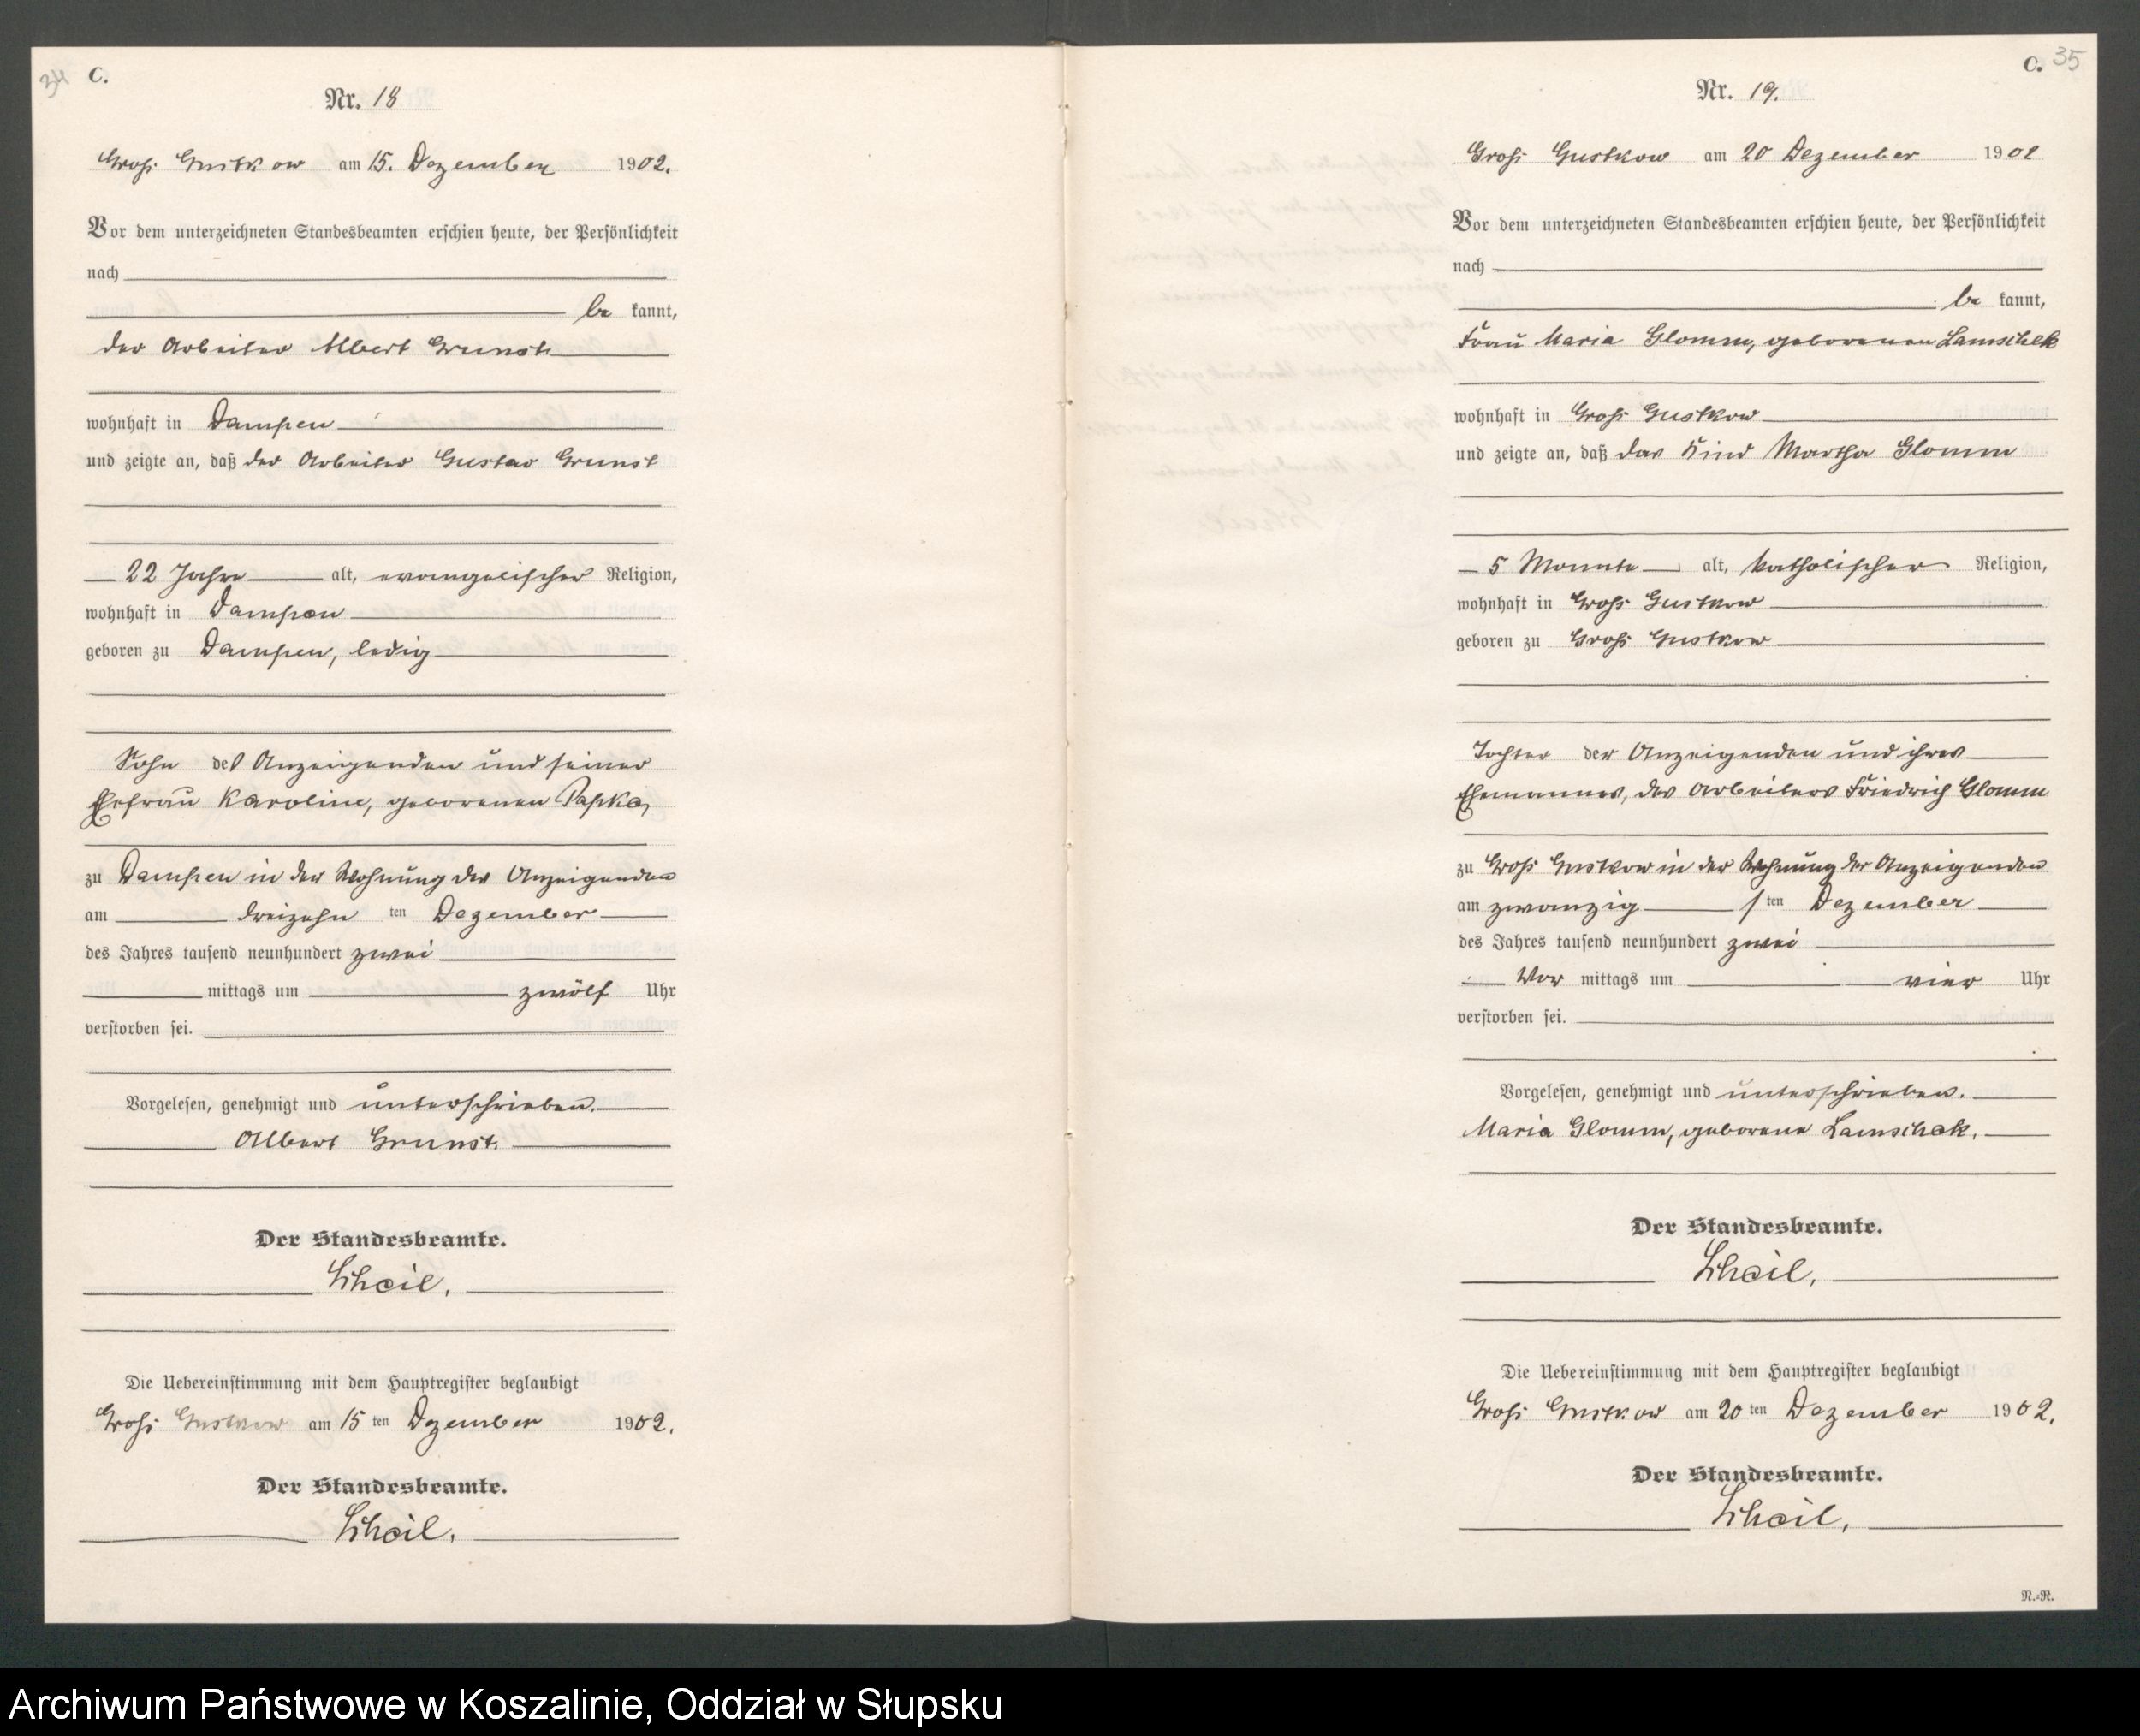 34 C.
Nr. 18
Groß Gustkow am 15. Dezember 1902.
Vor dem unterzeichneten Standesbeamten erschien heute, der Persönlichkeit
nach
be kannt,
der Arbeiter Albert Grunst
wohnhaft in Dampen
und zeigte an, daß der Arbeiter Gustav Grunst
22 Jahre alt, evangelischer Religion,
wohnhaft in Dampen
geboren zu Dampen, ledig
Sohn des Anzeigenden und seiner
Ehefrau Karoline, geborenen Papke,
zu Dampen in der Wohnung des Anzeigenden
am dreizehn ten Dezember
des Jahres tausend neunhundert zwei
mittags um zwölf Uhr
verstorben sei.
Vorgelesen, genehmigt und unterschrieben.
Albert Grunst.
Der Standesbeamte.
Scheil.
Die Uebereinstimmung mit dem Hauptregister beglaubigt
Groß Gustkow am 15 ten Dezember 1902.
Der Standesbeamte.
Scheil.
C. 35
Nr. 19.
Groß Gustkow am 20 Dezember 1902
Vor dem unterzeichneten Standesbeamten erschien heute, der Persönlichkeit
nach
be kannt,
Frau Maria Glomm, geborenen Lamschek
wohnhaft in Groß Gustkow
und zeigte an, daß das Kind Martha Glomm
5 Monate alt, katholischer Religion,
wohnhaft in Groß Gustkow
geboren zu Groß Gustkow
Tochter der Anzeigenden und ihres
Ehemannes, des Arbeiters Friedrich Glomm
zu Groß Gustkow in der Wohnung der Anzeigenden
am zwanzig sten Dezember
des Jahres tausend neunhundert zwei
Vor mittags um vier Uhr
verstorben sei.
Vorgelesen, genehmigt und unterschrieben.
Maria Glomm, geborene Lamschek.
Der Standesbeamte.
Scheil.
Die Uebereinstimmung mit dem Hauptregister beglaubigt
Groß Gustkow am 20 ten Dezember 1902.
Der Standesbeamte.
Scheil.
N.-R.
Archiwum Państwowe w Koszalinie, Oddział w Słupsku